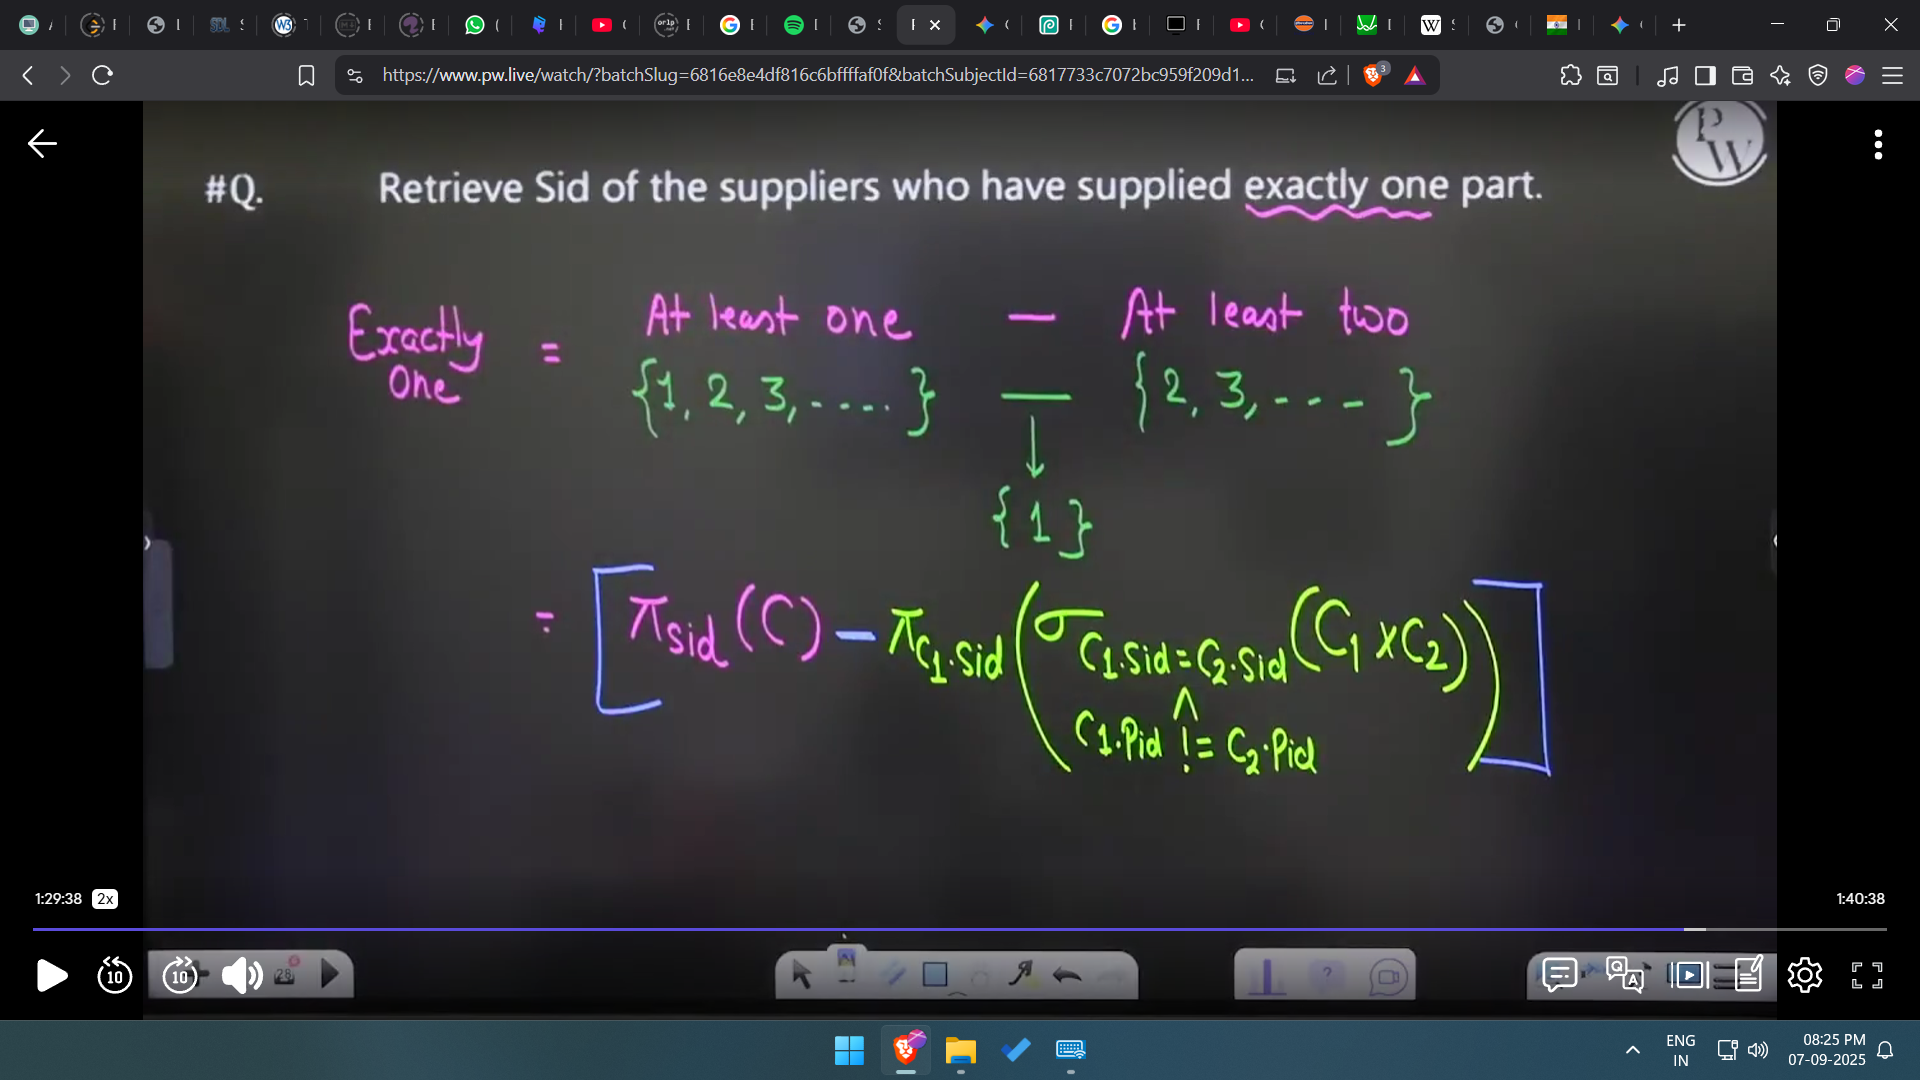 https://www.pw.live/watch/?batchSlug=6816e8e4df816c6bffffaf0f&batchSubjectId=6817733c7072bc959f209d1...
3
PW
#Q. Retrieve Sid of the suppliers who have supplied exactly one part.
Exactly One = At least one — At least two
{1, 2, 3, ....} — {2, 3, - - -}
{1}
= [π sid (C) − π C1.sid (σ C1.sid = C2.sid (C1 × C2))]
∧
C1.Pid != C2.Pid
1:29:38 2x 1:40:38
10 10 28
ENG 08:25 PM
IN 07-09-2025